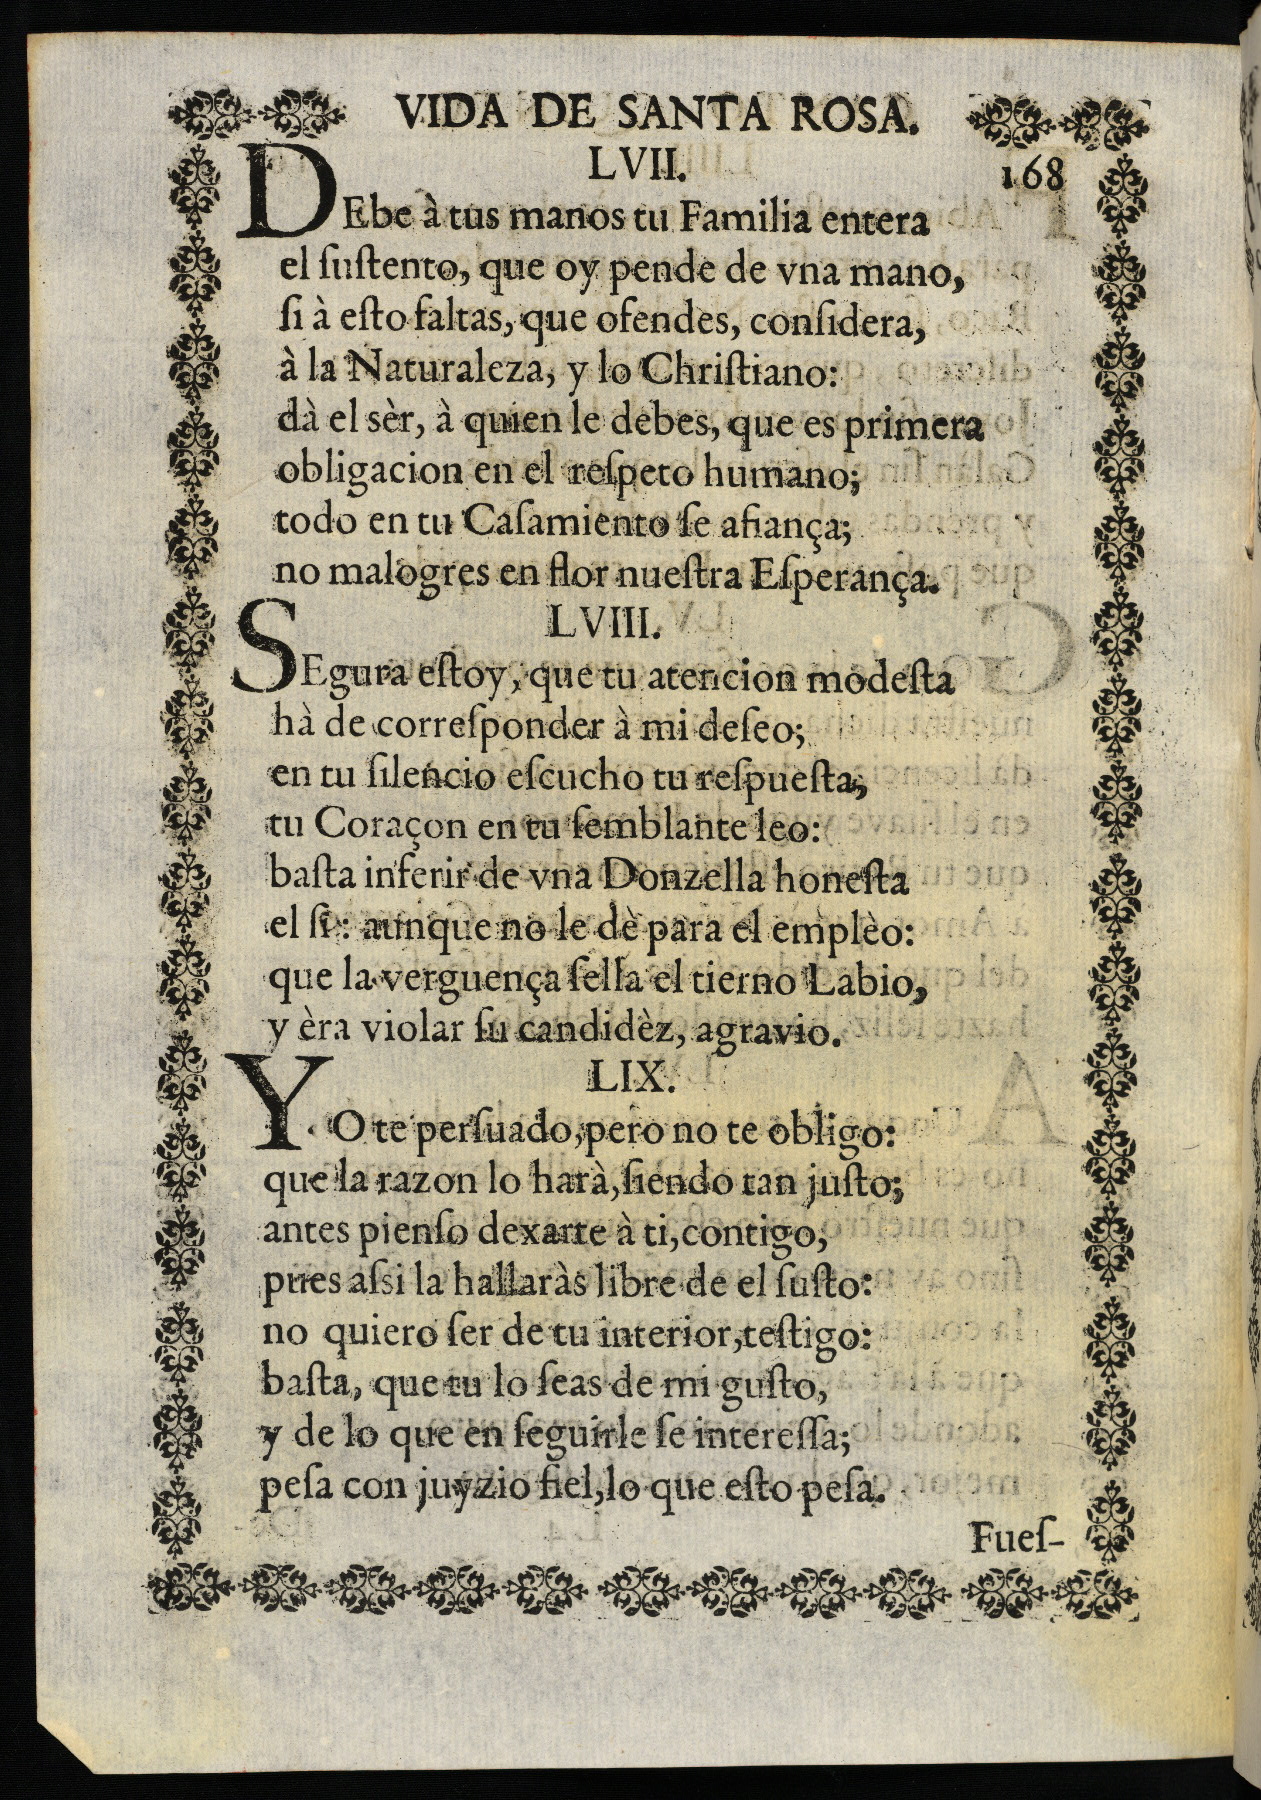 VIDA DE SANTA ROSA.
LVII.
168
DEbe à tus manos tu Familia entera
el ſuſtento, que oy pende de vna mano,
ſi à eſto faltas, que ofendes, conſidera,
à la Naturaleza, y lo Chriſtiano:
dà el sèr, à quien le debes, que es primera
obligacion en el reſpeto humano;
todo en tu Caſamiento ſe afiança;
no malogres en flor nueſtra Eſperança.
LVIII.
SEgura eſtoy, que tu atencion modeſta
hà de correſponder à mi deſeo;
en tu ſilencio eſcucho tu reſpueſta;
tu Coraçon en tu ſemblante leo:
baſta inferir de vna Donzella honeſta
el ſi: aunque no le dè para el emplèo:
que la verguença ſella el tierno Labio,
y èra violar ſu candidèz, agravio.
LIX.
YO te perſuado, pero no te obligo:
que la razon lo harà, ſiendo tan juſto;
antes pienſo dexarte à ti, contigo,
pues aſsi la hallaràs libre de el ſuſto:
no quiero ſer de tu interior, teſtigo:
baſta, que tu lo ſeas de mi guſto,
y de lo que en ſeguirle ſe intereſſa;
peſa con juyzio fiel, lo que eſto peſa.
Fueſ-